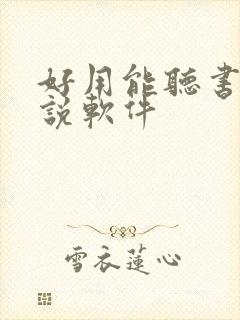 好用能聽書
說軟件
雪衣蓮心